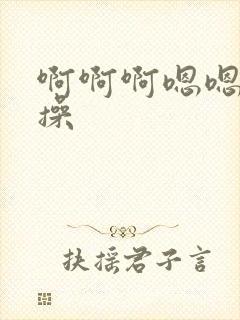 啊啊啊嗯嗯
操
扶摇君子言